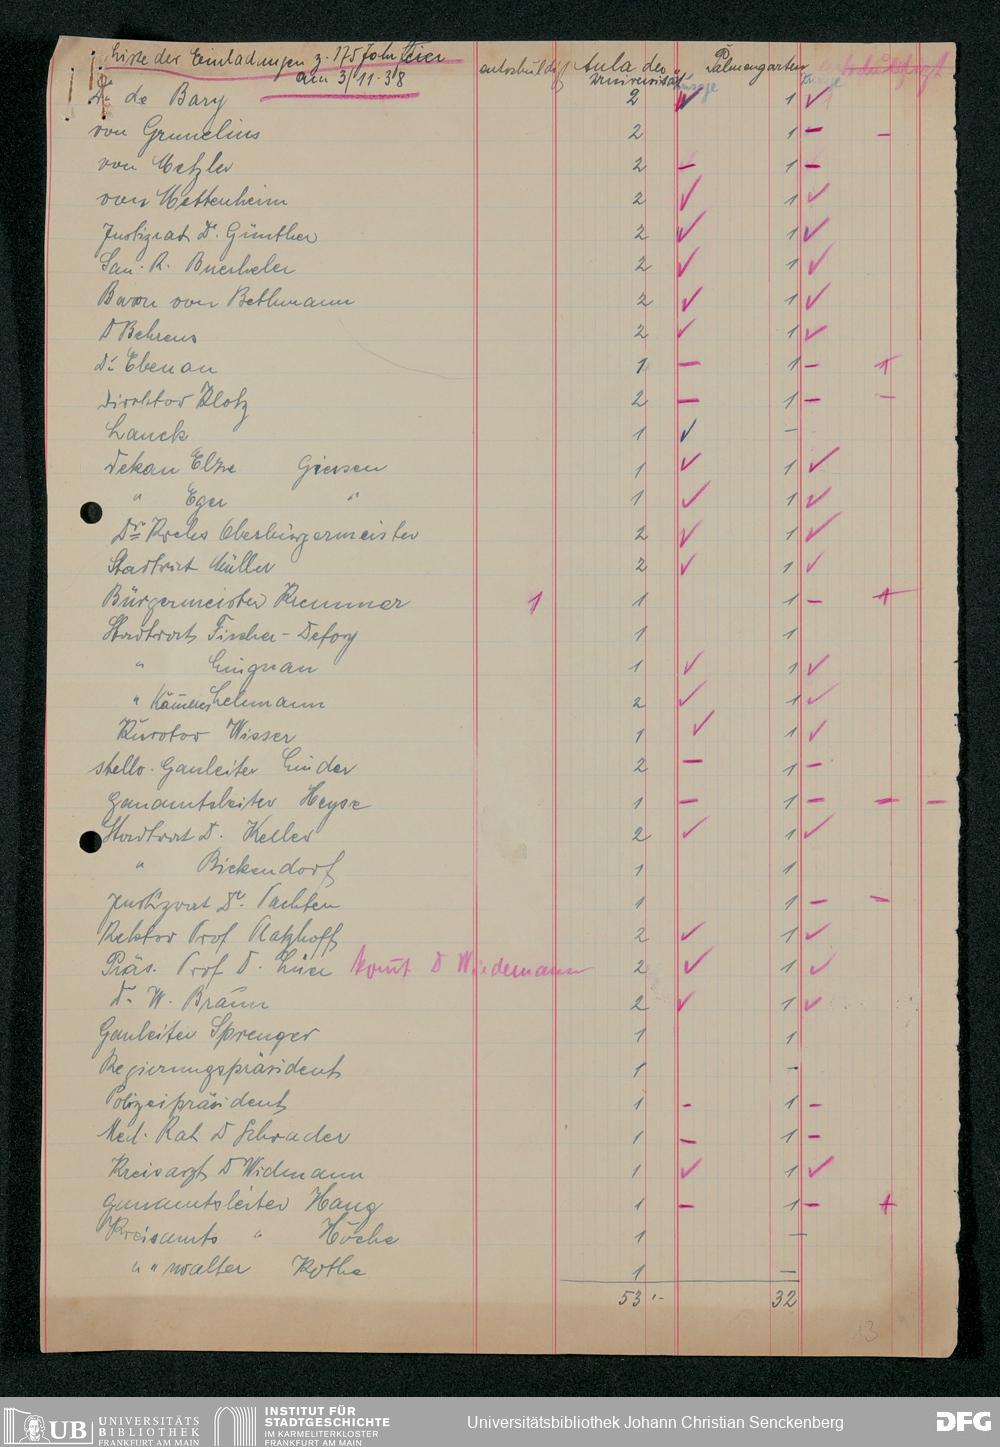 Liste der Einladungen z. 175 Jahr Feier
am 3/11.38
entschuldigt Aula der Universität Zusage Palmengarten Zusage
Dr. de Bary 2 1
von Grunelius 2 1 –
von Metzler 2 – 1 –
von Mettenheim 2 1
Justizrat Dr. Günther 2 1
San. R. Buecheler 2 1
Baron von Bethmann 2 1
D Behrens 2 1
Dr. Ebenau 1 – 1 –
Direktor Klotz 2 – 1 – –
Lauck 1 –
Dekan Elze Giessen 1 1
" Eger " 1 1
Dr. Krebs Oberbürgermeister 2 1
Stadtrat Müller 2 1
Bürgermeister Kremmer 1 1 1 –
Stadtrat Fischer-Defoy 1 1
" Lingnau 1 1
" Kämmerer Lehmann 2 1
Kurator Wisser 1 1
stellv. Gauleiter Linder 2 – 1 –
Gauamtsleiter Heyse 1 – 1 – – –
Stadtrat D. Keller 2 1
" Bickendorf 1 1
Justizrat Dr. Pachten 1 1 – –
Rektor Prof Platzhoff 2 1
Präs. Prof D. Lüer kommt D Wiedemann 2 1
Dr. W. Braun 2 1
Gauleiter Sprenger 1 1
Regierungspräsident 1 –
Polizeipräsident 1 – 1 –
Med. Rat D Schrader 1 – 1 –
Kreisarzt D Widmann 1 1
Gauamtsleiter Haug 1 – 1 –
Kreisamts " Höche 1 –
" " walter Kothe 1 –
53 32
13
UB UNIVERSITÄTS
BIBLIOTHEK
FRANKFURT AM MAIN
INSTITUT FÜR
STADTGESCHICHTE
IM KARMELITERKLOSTER
FRANKFURT AM MAIN
Universitätsbibliothek Johann Christian Senckenberg
DFG